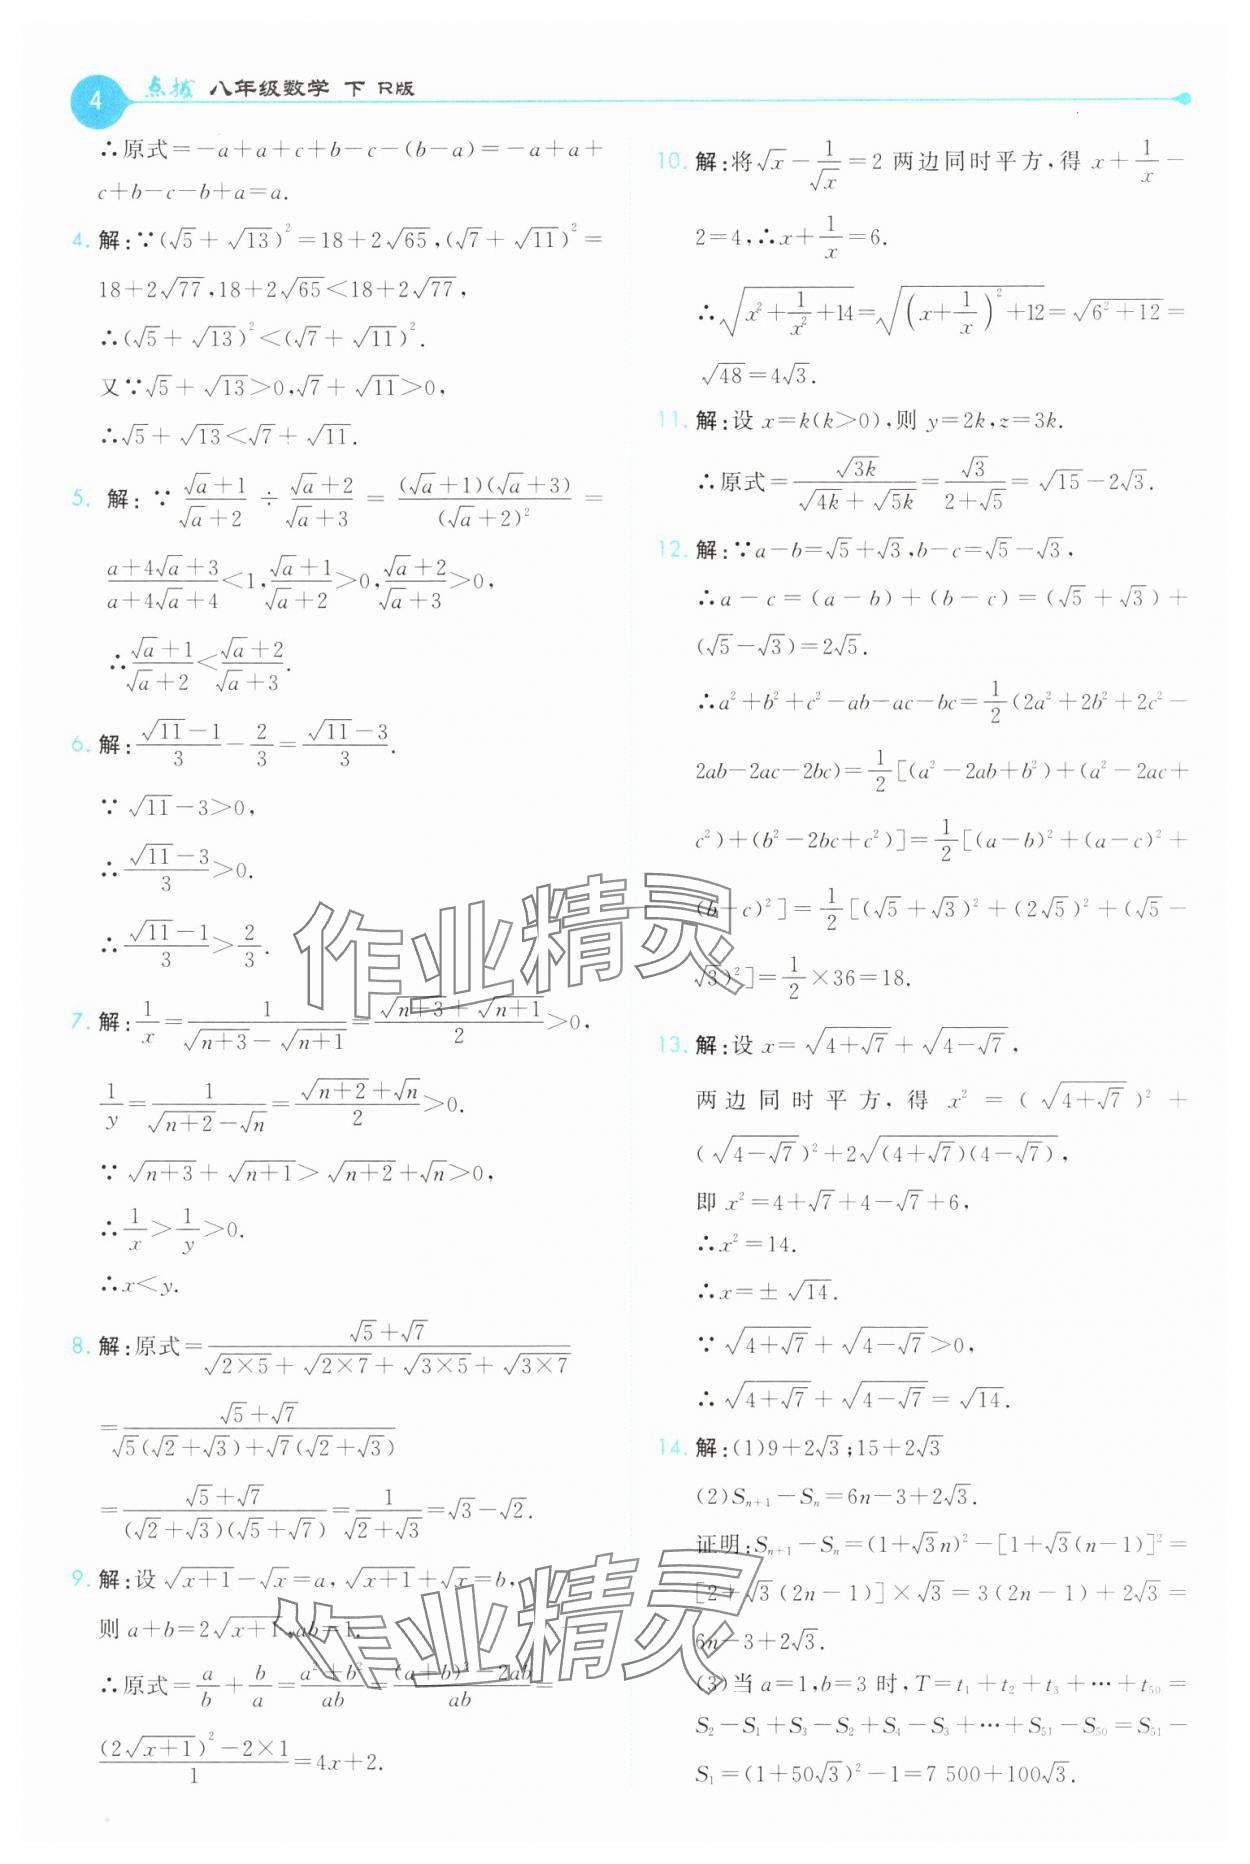 4 点拨 八年级数学 下 R版
∴原式=-a+a+c+b-c-(b-a)=-a+a+
c+b-c-b+a=a.
4. 解:∵(√5+√13)²=18+2√65,(√7+√11)²=
18+2√77,18+2√65<18+2√77,
∴(√5+√13)²<(√7+√11)².
又∵√5+√13>0,√7+√11>0,
∴√5+√13<√7+√11.
5. 解:∵(√a+1)/(√a+2)÷(√a+2)/(√a+3)=(√a+1)(√a+3)/(√a+2)²=
(a+4√a+3)/(a+4√a+4)<1,(√a+1)/(√a+2)>0,(√a+2)/(√a+3)>0,
∴(√a+1)/(√a+2)<(√a+2)/(√a+3).
6. 解:(√11-1)/3-2/3=(√11-3)/3.
∵√11-3>0,
∴(√11-3)/3>0.
∴(√11-1)/3>2/3.
7. 解:1/x=1/(√(n+3)-√(n+1))=(√(n+3)+√(n+1))/2>0,
1/y=1/(√(n+2)-√n)=(√(n+2)+√n)/2>0.
∵√(n+3)+√(n+1)>√(n+2)+√n>0,
∴1/x>1/y>0.
∴x<y.
8. 解:原式=(√5+√7)/(√(2×5)+√(2×7)+√(3×5)+√(3×7))
=(√5+√7)/(√5(√2+√3)+√7(√2+√3))
=(√5+√7)/((√2+√3)(√5+√7))=1/(√2+√3)=√3-√2.
9. 解:设√(x+1)-√x=a,√(x+1)+√x=b,
则a+b=2√(x+1),ab=1.
∴原式=a/b+b/a=(a²+b²)/ab=((a+b)²-2ab)/ab=
((2√(x+1))²-2×1)/1=4x+2.
10. 解:将√x-1/√x=2 两边同时平方,得 x+1/x-
2=4,∴x+1/x=6.
∴√(x²+1/x²+14)=√((x+1/x)²+12)=√(6²+12)=
√48=4√3.
11. 解:设 x=k(k>0),则 y=2k,z=3k.
∴原式=√(3k)/(√(4k)+√(5k))=√3/(2+√5)=√15-2√3.
12. 解:∵a-b=√5+√3,b-c=√5-√3,
∴a-c=(a-b)+(b-c)=(√5+√3)+
(√5-√3)=2√5.
∴a²+b²+c²-ab-ac-bc=1/2(2a²+2b²+2c²-
2ab-2ac-2bc)=1/2[(a²-2ab+b²)+(a²-2ac+
c²)+(b²-2bc+c²)]=1/2[(a-b)²+(a-c)²+
(b-c)²]=1/2[(√5+√3)²+(2√5)²+(√5-
√3)²]=1/2×36=18.
13. 解:设 x=√(4+√7)+√(4-√7),
两边同时平方,得 x²=(√(4+√7))²+
(√(4-√7))²+2√((4+√7)(4-√7)),
即 x²=4+√7+4-√7+6,
∴x²=14.
∴x=±√14.
∵√(4+√7)+√(4-√7)>0,
∴√(4+√7)+√(4-√7)=√14.
14. 解:(1)9+2√3;15+2√3
(2)Sₙ₊₁-Sₙ=6n-3+2√3.
证明:Sₙ₊₁-Sₙ=(1+√3n)²-[1+√3(n-1)]²=
[2+√3(2n-1)]×√3=3(2n-1)+2√3=
6n-3+2√3.
(3)当 a=1,b=3 时,T=t₁+t₂+t₃+⋯+t₅₀=
S₂-S₁+S₃-S₂+S₄-S₃+⋯+S₅₁-S₅₀=S₅₁-
S₁=(1+50√3)²-1=7 500+100√3.
作业精灵
作业精灵